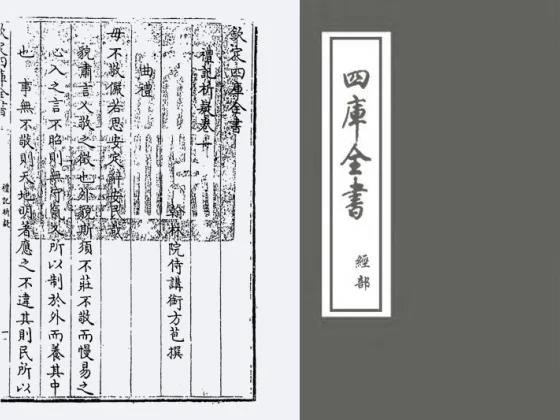 欽定四庫全書
禮記析疑卷一
翰林院侍講銜方苞撰
曲禮
毋不敬儼若思安定辭安民哉
貌肅言乂敬之徵也外貌斯須不莊不敬而慢易之
心入之言不昭則無守氣所以制於外而養其中
也　事無不敬則天地明著應之不違其則民所以
欽定四庫全書
禮記析疑
一
四庫全書
經部